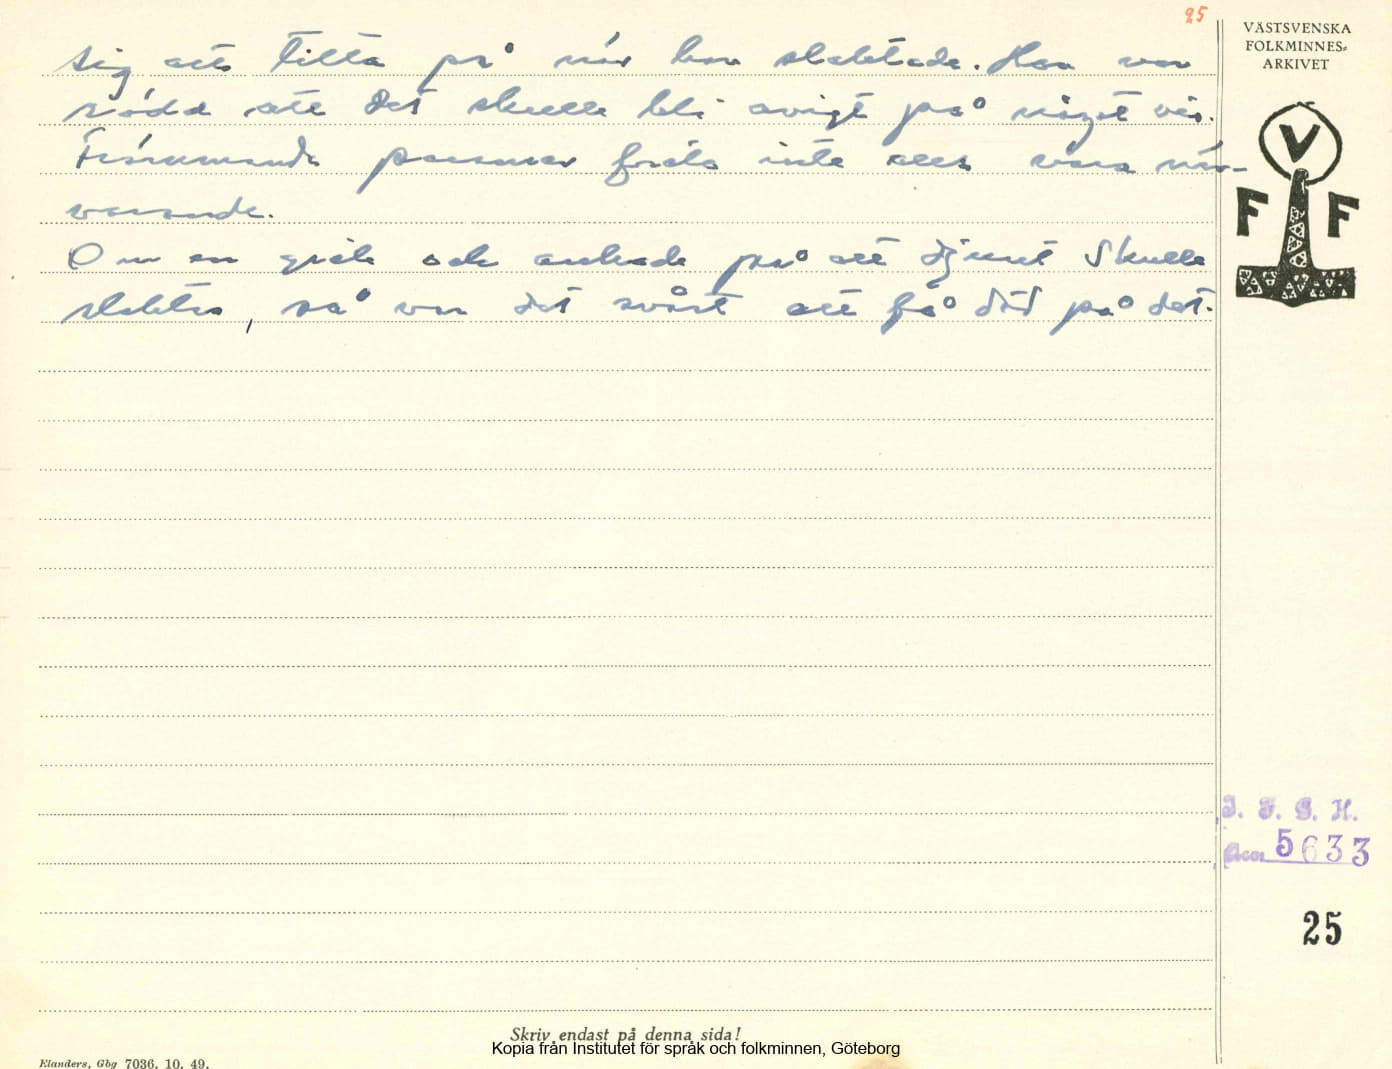 25
VÄSTSVENSKA
FOLKMINNES-
ARKIVET
V
F F
sig att titta på när han slaktade. Han var
rädd att det skulle bli avigt på något vis.
Främmande personer fick inte alls vara när-
varande.
Om en grät och ankade på att djuret skulle
slaktas, så var det svårt att få död på det.
I. F. G. H.
Acc. 5633
25
Skriv endast på denna sida!
Kopia från Institutet för språk och folkminnen, Göteborg
Elanders, Gbg 7036. 10. 49.